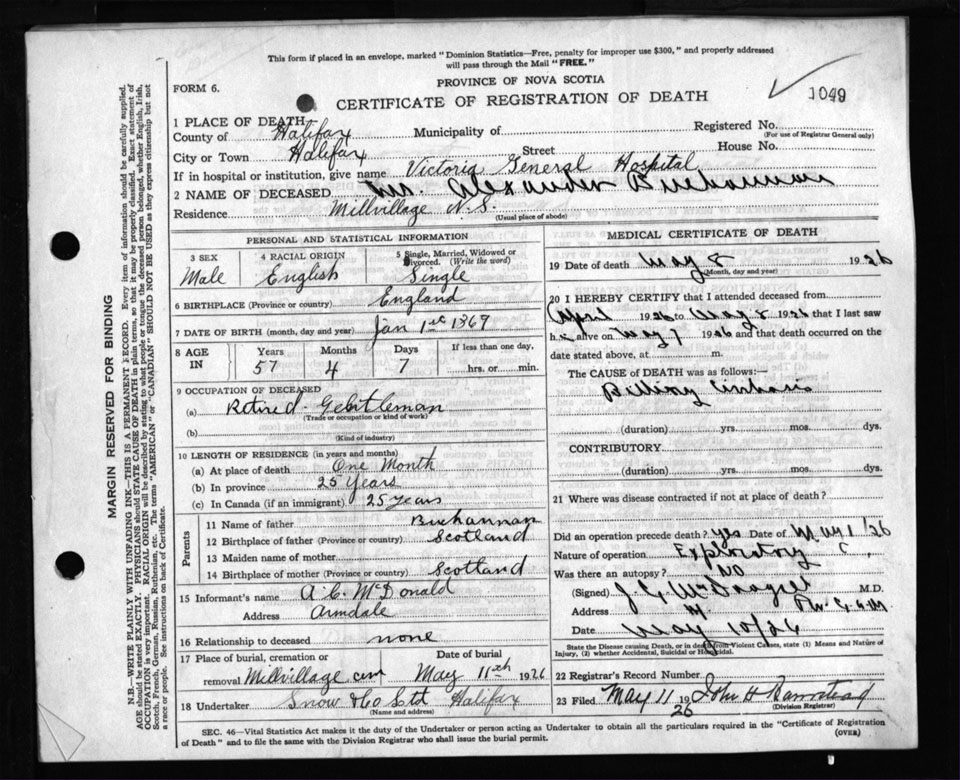 This form if placed in an envelope, marked "Dominion Statistics—Free, penalty for improper use $300," and properly addressed
will pass through the Mail "FREE."
PROVINCE OF NOVA SCOTIA
FORM 6.
CERTIFICATE OF REGISTRATION OF DEATH
1049
1 PLACE OF DEATH
County of Halifax Municipality of Registered No.
(For use of Registrar General only)
City or Town Halifax Street House No.
If in hospital or institution, give name Victoria General Hospital
2 NAME OF DECEASED Mr. Alexander Buchannan
Residence Millvillage N.S.
(Usual place of abode)
PERSONAL AND STATISTICAL INFORMATION
3 SEX 4 RACIAL ORIGIN 5 Single, Married, Widowed or Divorced. (Write the word)
Male English Single
6 BIRTHPLACE (Province or country) England
7 DATE OF BIRTH (month, day and year) Jan 1st 1869
8 AGE IN Years Months Days If less than one day,
57 4 7 hrs. or min.
9 OCCUPATION OF DECEASED
(a) Retired Gentleman
(Trade or occupation or kind of work)
(b)
(Kind of industry)
10 LENGTH OF RESIDENCE (in years and months)
(a) At place of death One Month
(b) In province 25 Years
(c) In Canada (if an immigrant) 25 Years
Parents
11 Name of father Buchannan
12 Birthplace of father (Province or country) Scotland
13 Maiden name of mother
14 Birthplace of mother (Province or country) Scotland
15 Informant's name A. C. McDonald
Address Armdale
16 Relationship to deceased none
17 Place of burial, cremation or Date of burial
removal Millvillage cem May 11th 1926
18 Undertaker Snow & Co Ltd Halifax
(Name and address)
MEDICAL CERTIFICATE OF DEATH
19 Date of death May 8 1926
(Month, day and year)
20 I HEREBY CERTIFY that I attended deceased from
April 1926 to May 8 1926 that I last saw
h alive on May 7 1926 and that death occurred on the
date stated above, at m.
The CAUSE OF DEATH was as follows:—
Billiary Cirrhosis
(duration) yrs. mos. dys.
CONTRIBUTORY.
(duration) yrs. mos. dys.
21 Where was disease contracted if not at place of death?
Did an operation precede death? yes Date of May 1/26
Nature of operation Exploratory
Was there an autopsy? NO
(Signed) M.D.
Address
Date May 10/26
State the Disease causing Death, or in death from Violent Causes, state (1) Means and Nature of
Injury, (2) whether Accidental, Suicidal or Homicidal.
22 Registrar's Record Number
23 Filed May 11 1926 John H
(Division Registrar)
SEC. 46—Vital Statistics Act makes it the duty of the Undertaker or person acting as Undertaker to obtain all the particulars required in the "Certificate of Registration
of Death" and to file the same with the Division Registrar who shall issue the burial permit. (OVER)
MARGIN RESERVED FOR BINDING
N.B.—WRITE PLAINLY WITH UNFADING INK—THIS IS A PERMANENT RECORD. Every item of information should be carefully supplied.
AGE should be stated EXACTLY. PHYSICIANS should STATE CAUSE OF DEATH in plain terms, so that it may be properly classified. Exact statement of
OCCUPATION is very important. RACIAL ORIGIN will be described by stating to what people or tongue the deceased person belonged, whether English, Irish,
Scotch, French, German, Russian, Ruthenian, etc. The terms "AMERICAN" or "CANADIAN" SHOULD NOT BE USED as they express citizenship but not
a race or people. See instructions on back of Certificate.